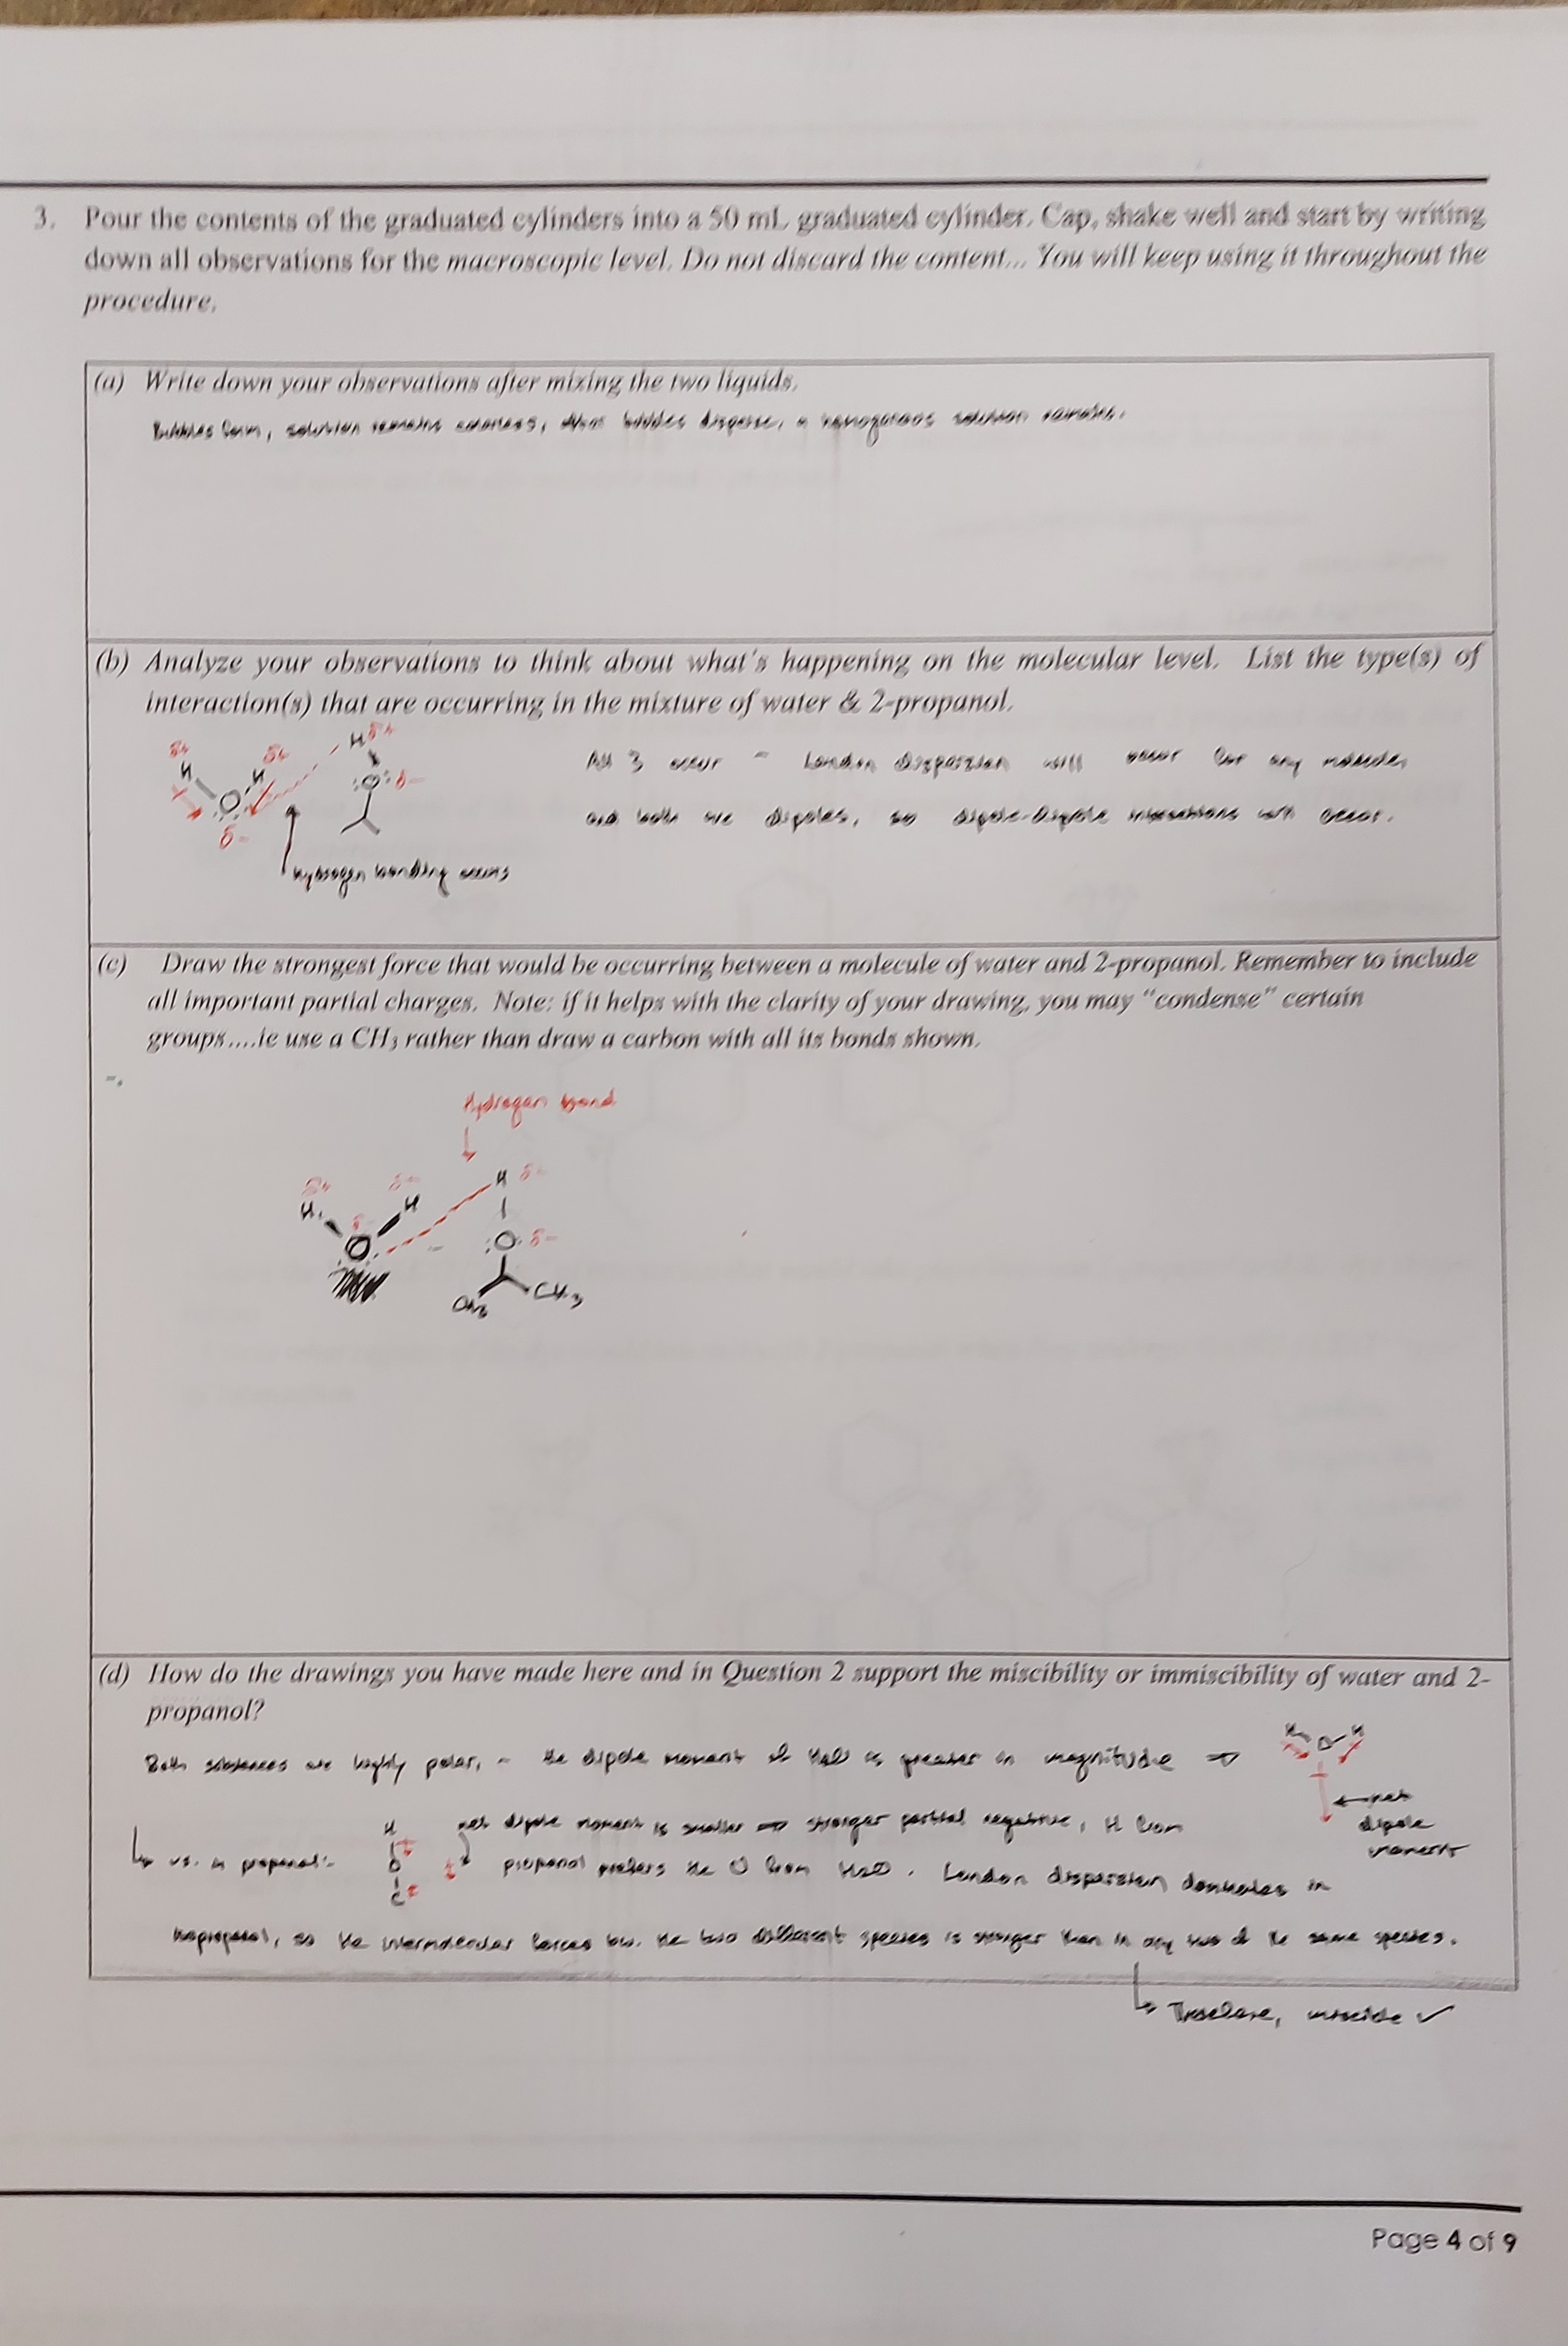 3. Pour the contents of the graduated cylinders into a 50 mL graduated cylinder. Cap, shake well and start by writing
down all observations for the macroscopic level. Do not discard the content... You will keep using it throughout the
procedure.
(a) Write down your observations after mixing the two liquids.
Bubbles form, solution remains colorless, After bubbles disperse, a homogenous solution remains.
(b) Analyze your observations to think about what's happening on the molecular level. List the type(s) of
interaction(s) that are occurring in the mixture of water & 2-propanol.
δ+ δ+ H δ+
H H O δ-
O
δ-
Hydrogen bonding occurs
All 3 occur - London dispersion will occur for any molecules
and both are dipoles, so dipole-dipole interactions will occur.
(c) Draw the strongest force that would be occurring between a molecule of water and 2-propanol. Remember to include
all important partial charges. Note: if it helps with the clarity of your drawing, you may "condense" certain
groups....ie use a CH3 rather than draw a carbon with all its bonds shown.
Hydrogen bond
δ+ H H
H
O O δ-
CH3 CH3
(d) How do the drawings you have made here and in Question 2 support the miscibility or immiscibility of water and 2-
propanol?
Both substances are highly polar, - the dipole moment of H2O is greater in magnitude ⇒ H O H
← net
dipole
moment
↳ vs. in propanol:
H
O
C
net dipole moment is smaller ⇒ stronger partial negative, H from
propanol prefers the O from H2O. London dispersion dominates in
isopropanol, so the intermolecular forces btw. the two different species is stronger than in any two of the same species.
↳ Therefore, miscible ✓
Page 4 of 9